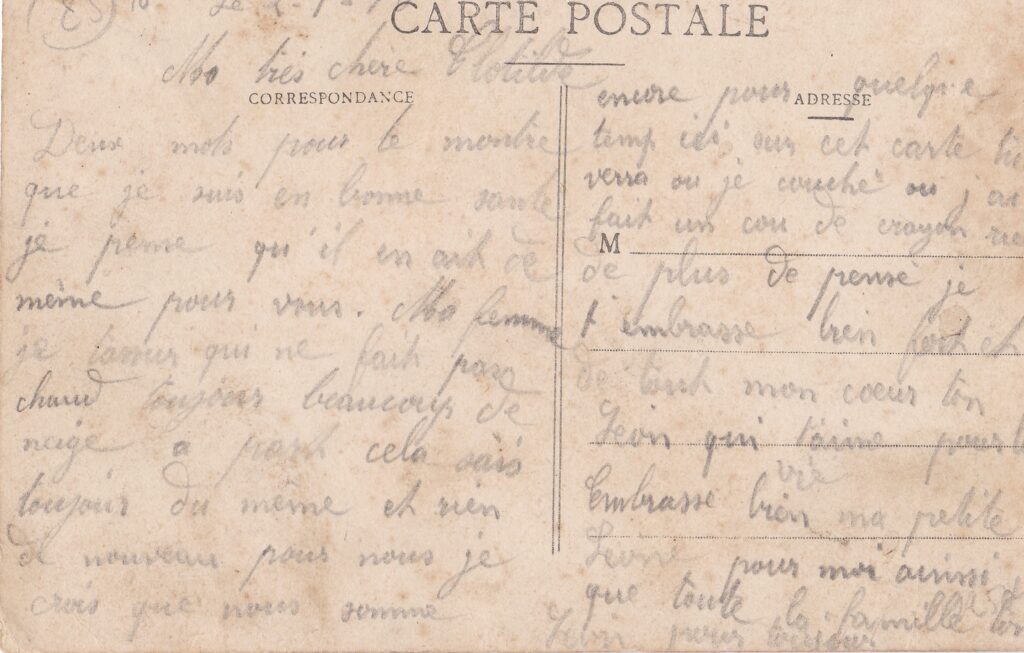 (83) Le 2-1-1
CARTE POSTALE
Ma très chère Clotilde
CORRESPONDANCE
Deux mots pour te montre
que je suis en bonne sante
je pense qu'il en ait de
même pour vous. Ma femme
je qui ne fait pas
chaud toujours beaucoup de
neige a part cela sais
toujours du même et rien
de nouveau pour nous je
crois que nous somme
ADRESSE
encore pour quelque
temp ici sur cet carte tu
verra ou je couché ou j ai
fait un cou de crayon rien
M
de plus de pensé je
t embrasse bien fort et
de tout mon coeur ton
Léon qui t'aime pour la
vie
Embrasse bien ma petite
Léone pour moi ainsi
que toute la famille ton
Léon pour toujour